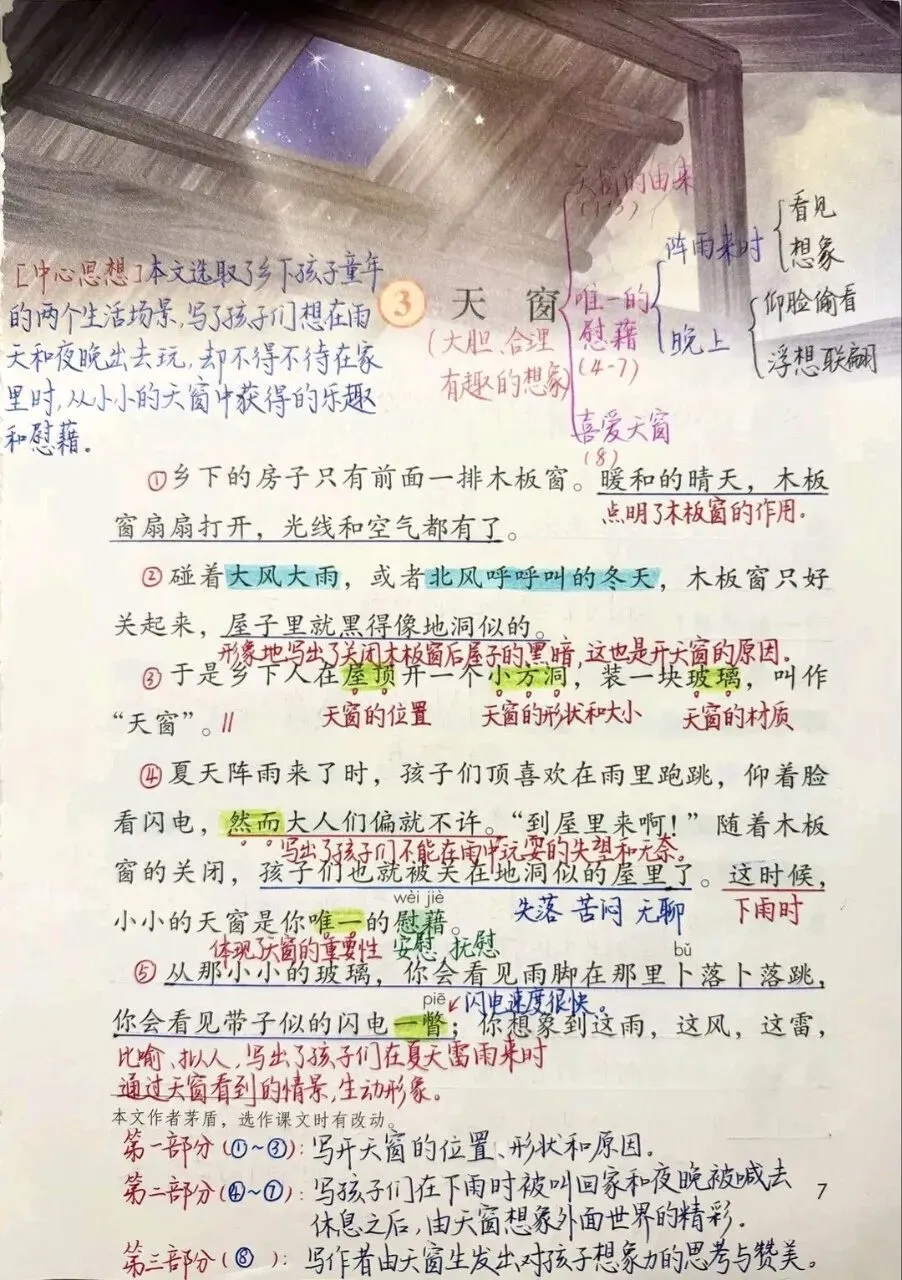 天窗的由来
(1-3)
看见
阵雨来时
想象
[中心思想]本文选取了乡下孩子童年
的两个生活场景,写了孩子们想在雨
天和夜晚出去玩,却不得不待在家
里时,从小小的天窗中获得的乐趣
和慰藉。
3 天窗
(大胆、合理
有趣的想象)
唯一的
慰藉
(4-7)
晚上
仰脸偷看
浮想联翩
喜爱天窗
(8)
①乡下的房子只有前面一排木板窗。暖和的晴天,木板
点明了木板窗的作用.
窗扇扇打开,光线和空气都有了。
②碰着大风大雨,或者北风呼呼叫的冬天,木板窗只好
关起来,屋子里就黑得像地洞似的。
形象地写出了关闭木板窗后屋子的黑暗,这也是开天窗的原因。
③于是乡下人在屋顶开一个小方洞,装一块玻璃,叫作
“天窗”。//
天窗的位置 天窗的形状和大小 天窗的材质
④夏天阵雨来了时,孩子们顶喜欢在雨里跑跳,仰着脸
看闪电,然而大人们偏就不许。“到屋里来啊!”随着木板
写出了孩子们不能在雨中玩耍的失望和无奈。
窗的关闭,孩子们也就被关在地洞似的屋里了。这时候,
wèi jiè
失落 苦闷 无聊 下雨时
小小的天窗是你唯一的慰藉。
体现了天窗的重要性 安慰、抚慰
bǔ
⑤从那小小的玻璃,你会看见雨脚在那里卜落卜落跳,
piē
闪电速度很快。
你会看见带子似的闪电一瞥;你想象到这雨,这风,这雷,
比喻、拟人,写出了孩子们在夏天雷雨来时
通过天窗看到的情景,生动形象。
本文作者茅盾,选作课文时有改动。
第一部分(①~③):写开天窗的位置、形状和原因.
第二部分(④~⑦):写孩子们在下雨时被叫回家和夜晚被喊去
休息之后,由天窗想象外面世界的精彩.
7
第三部分(⑧ ):写作者由天窗生发出对孩子想象力的思考与赞美。